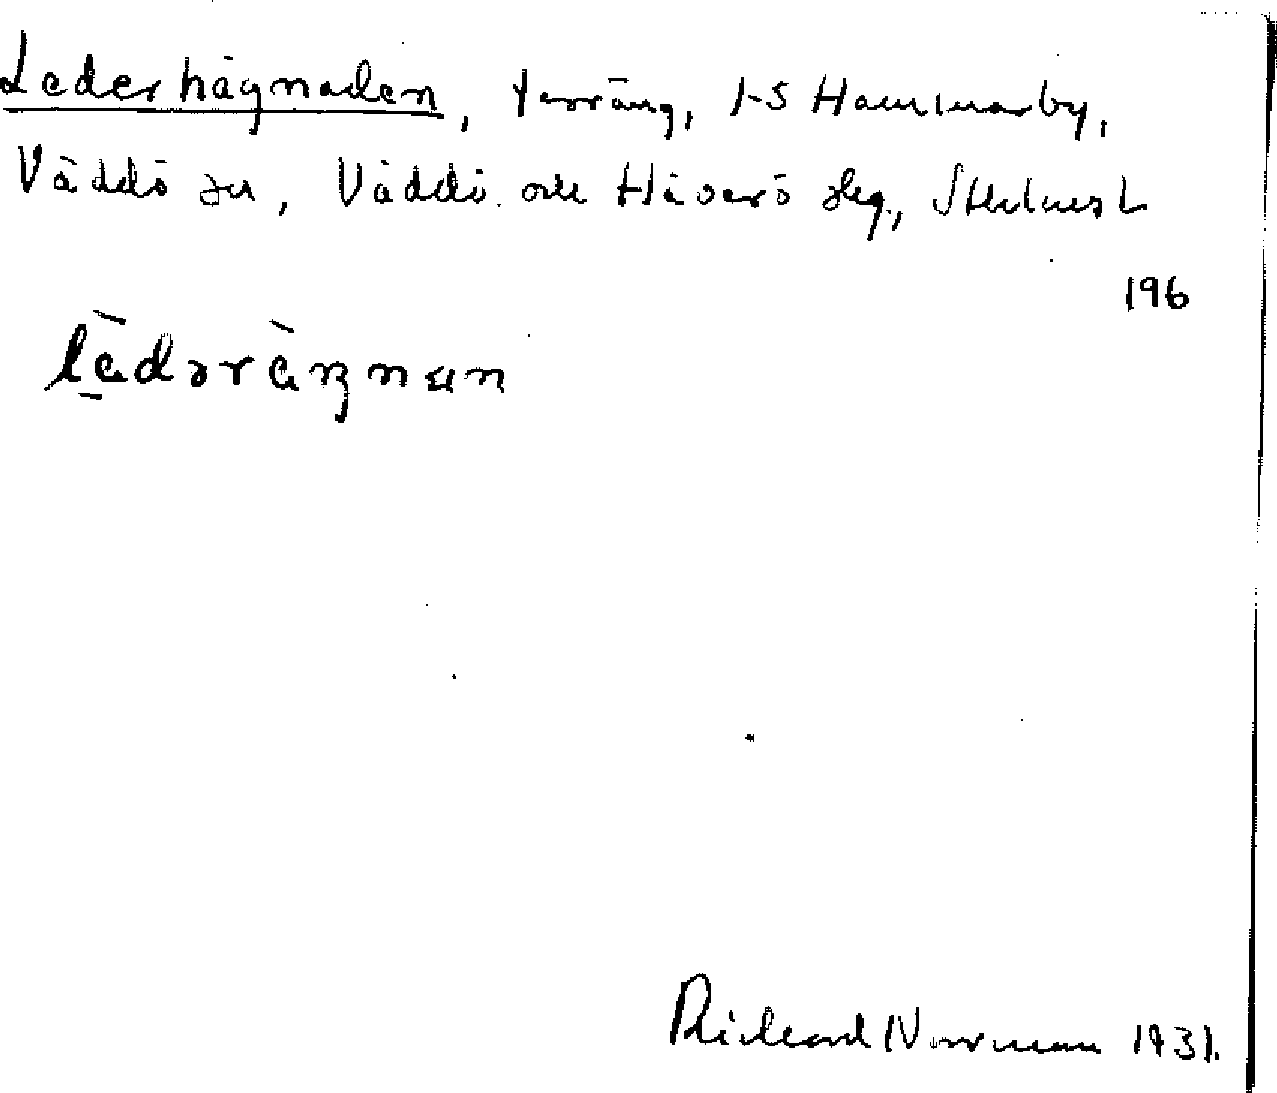 Lederhägnaden, terräng, 1-5 Hammarby,
Väddö sn, Väddö och Häverö slg., Sthlms L
196
lädəräŋnan
Richard Norrman 1931.